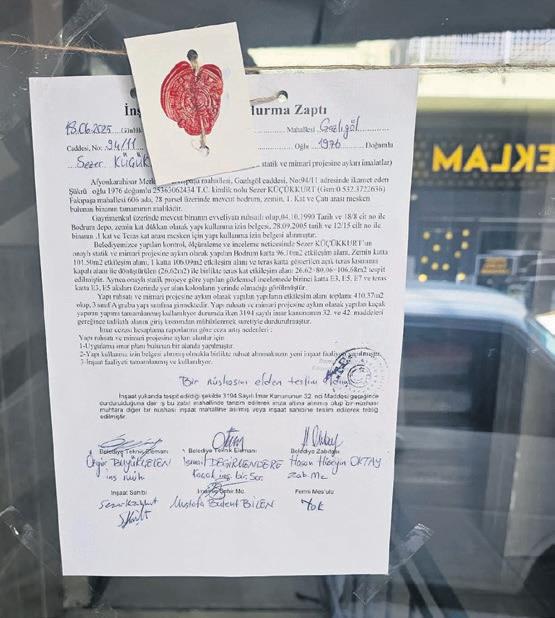 İnş durma Zaptı
13.06.2025 Günlü Mahallesi Gazlıgöl
Caddesi, No: 94/11 Oğlu 1976 Doğumlu
Sezer KÜÇÜK statik ve mimari projesine aykırı imalatlar)
Afyonkarahisar Merk paşa mahallesi, Gazlıgöl caddesi, No:94/11 adresinde ikamet eden
Şükrü oğlu 1976 doğumlu 25363062434 T.C. kimlik nolu Sezer KÜÇÜKKURT (Gsm 0.532.3722656)
Fakıpaşa mahallesi 606 ada, 28 parsel üzerinde mevcut bodrum, zemin, 1. Kat ve Çatı arası mesken
bulunan binanın tamamının malikidir.
Gayrimenkul üzerinde mevcut binanın evveliyatı ruhsatlı olup, 04.10.1990 Tarih ve 18/8 cilt no ile
bodrum depo, zemin kat dükkan olarak yapı kullanma izin belgesi, 28.09.2005 tarih ve 12/15 cilt no ile
binanın 1.kat ve Teras kat mesken için yapı kullanma izin belgesi alınmıştır.
Belediyemizce yapılan kontrol, ölçümleme ve inceleme neticesinde Sezer KÜÇÜKKURT'un
onaylı statik ve mimari projesine aykırı olarak yapılan Bodrum katta 96.10m2 etkileşim alanı, Zemin katta
101.50m2 etkileşim alanı, 1 katta 106.09m2 etkileşim alanı ve teras katta gösterilen açık teras kısmının
kapalı alan ile dönüştürülen (26.62m2) ile birlikte teras kat etkileşim alanı 26.62+80.06=106.68m2 tespit
edilmiştir. Ayrıca onaylı statik projeye göre yapılan görünsel incelemede birinci katta E3, E5, E7 ve teras
katta E3, E5 aksları üzerinde yer alan kolonların yerinde olmadığı görülmüştür.
Yapı ruhsatı ve mimari projesine aykırı olarak yapılan yapıların etkileşim alanı toplamı 410.37m2
olup, 3.sınıf A gruba yapı sınıfına girmektedir. Yapı ruhsatı ve mimari projesine aykırı olarak yapılan kaçak
yapının yapımı tamamlanmış kullanılıyor durumda iken 3194 sayılı imar kanununun 32. ve 42. maddeleri
gereğince tadilatlı alanın giriş kısmından mühürlenmek suretiyle durdurulmuştur.
İmar cezası hesaplama raporlarına göre ceza artış nedenleri ;
Yapı ruhsatı ve mimari projesine aykırı alanlar için
1-Uygulama imar planı bulunan bir alanda yapılmıştır.
2-Yapı kullanma izin belgesi alınmış olmakla birlikte ruhsat alınmaksızın yeni inşaat faaliyeti yapılmıştır.
3-İnşaat faaliyeti tamamlanmış ve kullanılıyor.
Bir nüshasını elden teslim aldım
İnşaat yukarıda tespit edildiği şekilde 3194 Sayılı İmar Kanununun 32. nci Maddesi gereğince
durdurulduğuna dair iş bu zabıt mahallinde tanzim edilerek imza altına alınmış olup bir nüshası
muhtara diğer bir nüshası inşaat mahalline asılmış veya inşaat sahibine teslim edilerek tebliğ
edilmiştir.
Belediye Teknik Elemanı Belediye Teknik Elemanı Belediye Zabıtası
Özgür BÜYÜKGELEN İsmail DEĞİRMENDERE Hasan Hüseyin OKTAY
inş müh. Kaçak inş. bir. Sor. Zab. Me.
İnşaat Sahibi Fenni Mes'ulü
Sezer Küçükkurt Mustafa Bülent BİLEN Yok
EKLAM